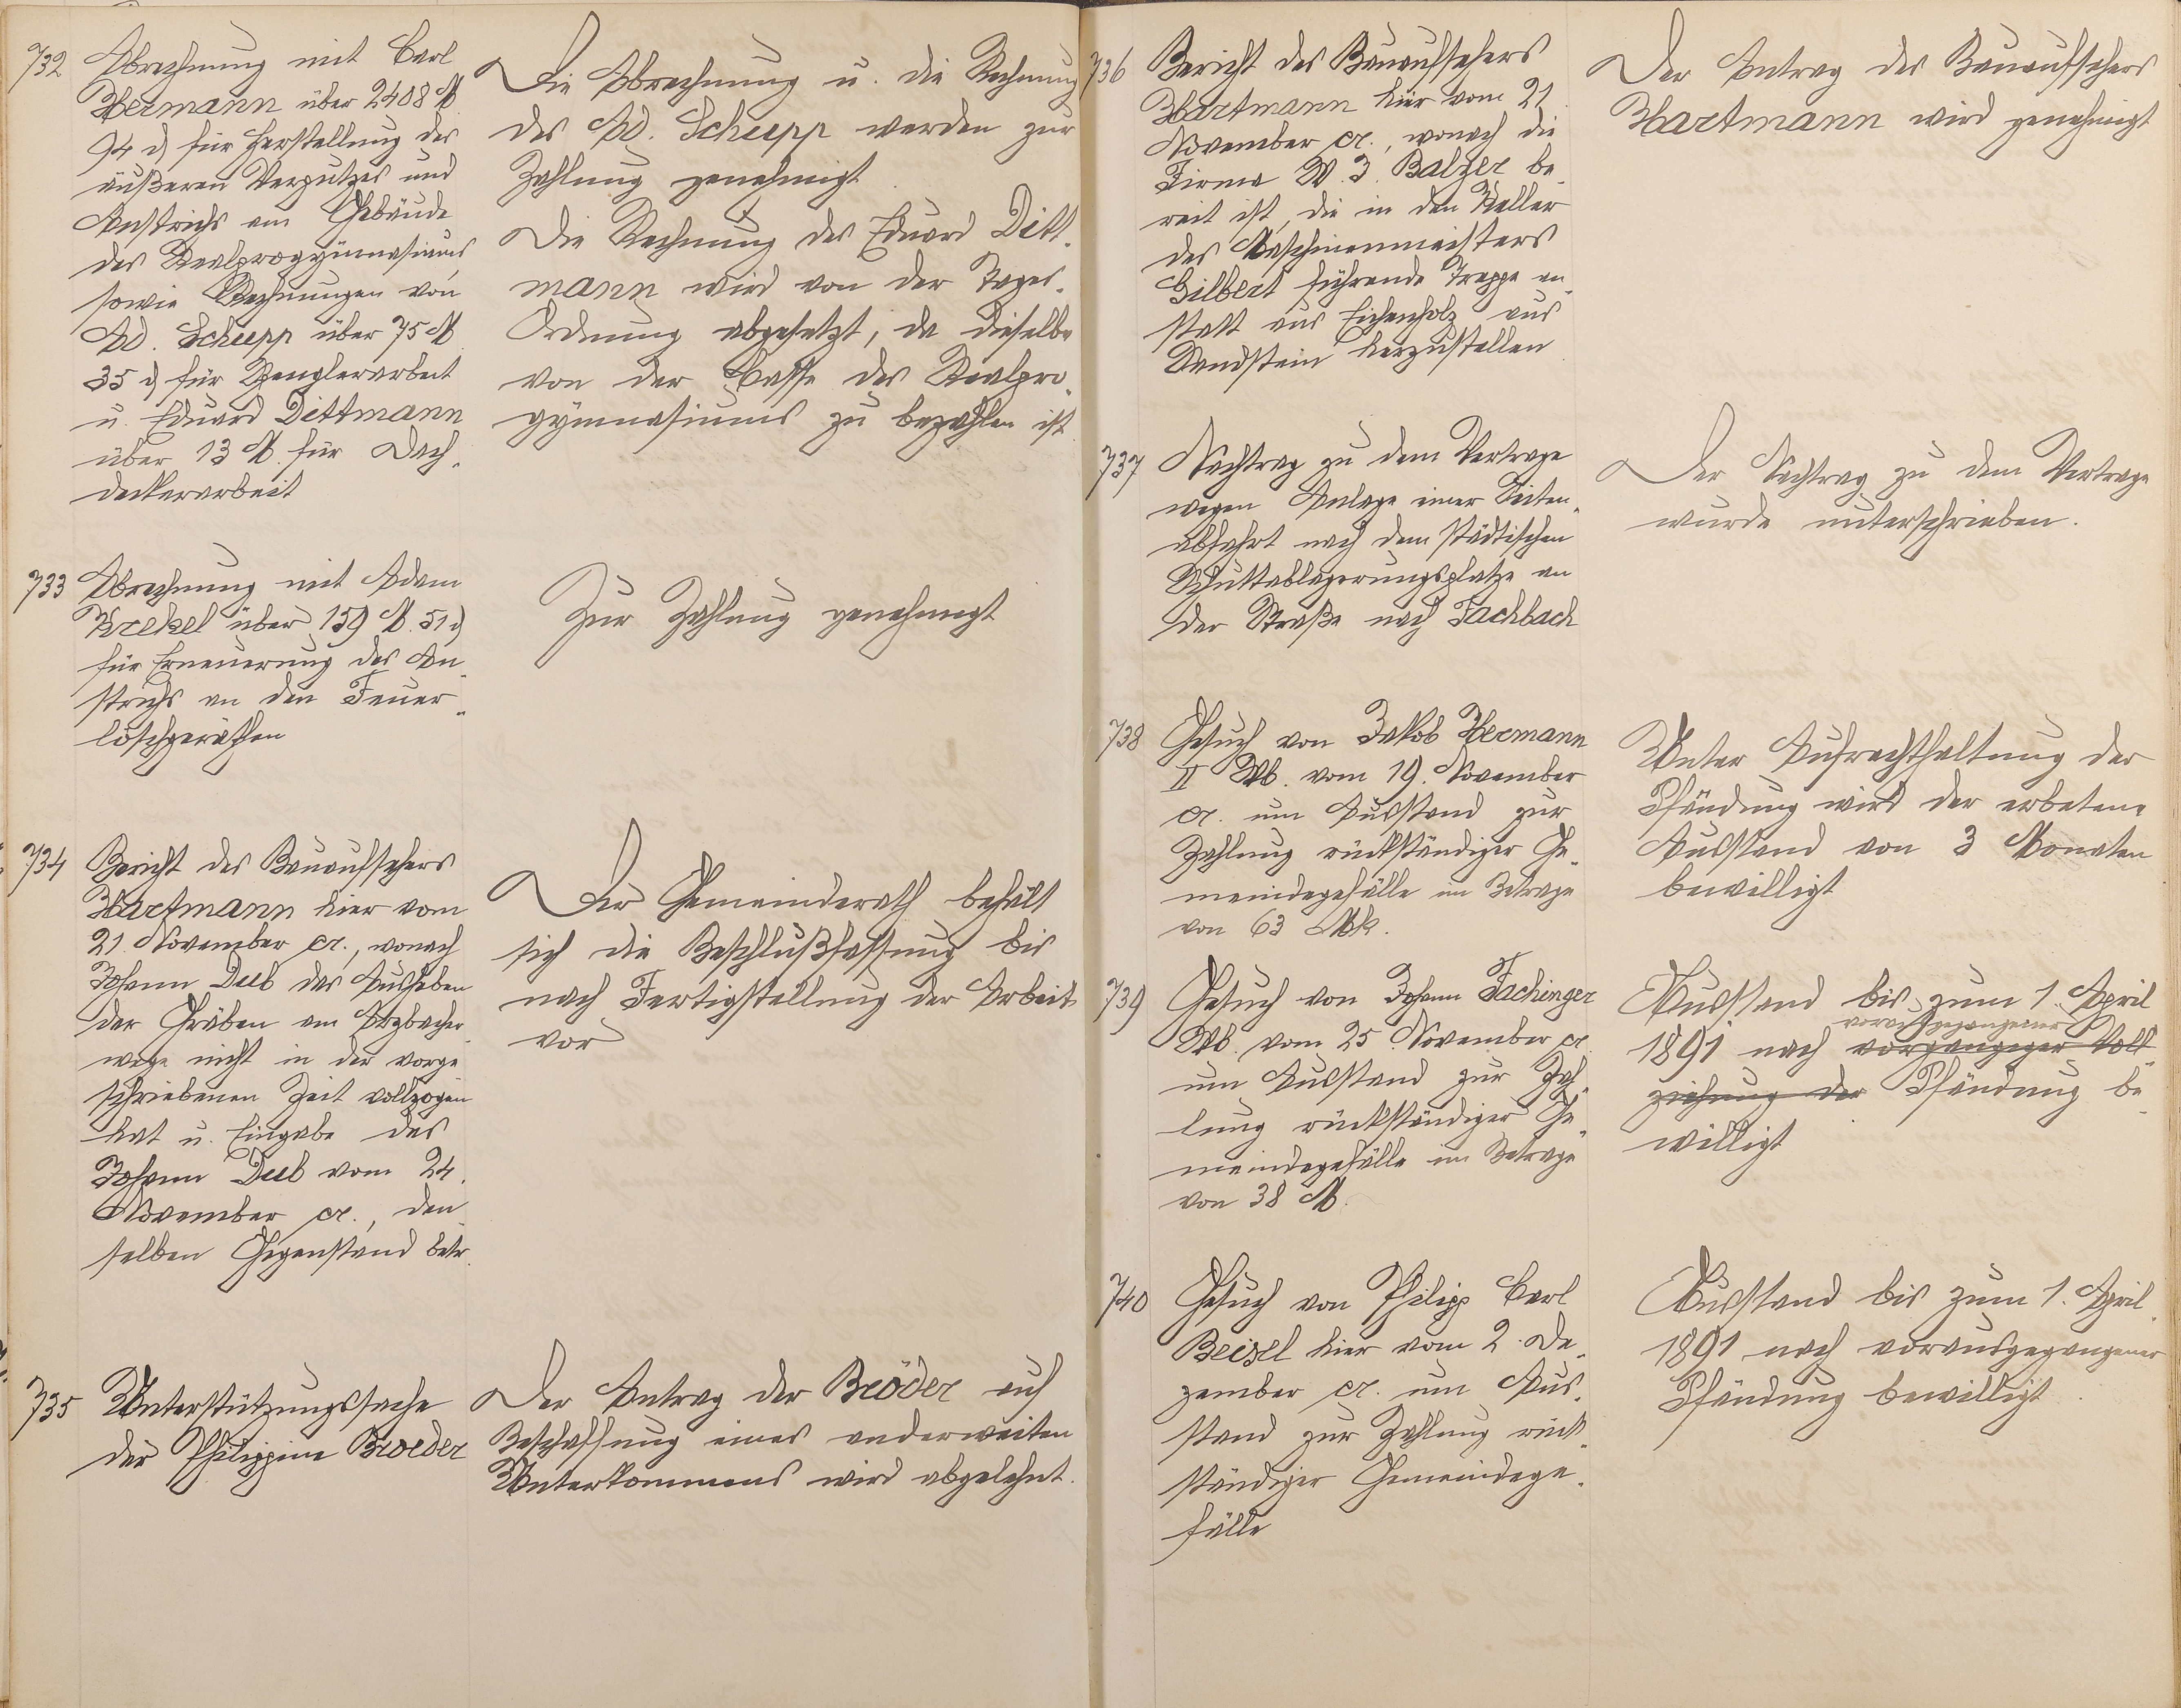 732
Abrechnung mit Carl
Hermann über 2408 M
94 ₰ für Herstellung des
äußeren Verputzes und
Anstrichs am Gebäude
des Realprogymnasiums
sowie Rechnungen von
Ad. Schupp über 75 M
35 ₰ für Spenglerarbeit
u. Eduard Dittmann
über 13 M. für Dach-
deckerarbeit
Die Abrechnung u. die Rechnung
des Ad. Schupp werden zur
Zahlung genehmigt.
Die Rechnung des Eduard Ditt-
mann wird von der Tages-
Ordnung abgesetzt, da dieselbe
von der Casse des Realpro-
gymnasiums zu bezahlen ist.
733
Abrechnung mit Adam
Krekel über 159 M. 51 ₰
für Erneuerung des An-
strichs an den Feuer-
löschgeräthen
Zur Zahlung genehmigt
734
Bericht des Bauaufsehers
Hartmann hier vom
21. November cr., wonach
Johann Dub das Ausheben
der Gräben am Arzbacher-
wege nicht in der vorge-
schriebenen Zeit vollzogen
hat u. Eingabe des
Johann Dub vom 24.
November cr., den-
selben Gegenstand betr.
Der Gemeinderath behält
sich die Beschlußfassung bis
nach Fertigstellung der Arbeit
vor
735
Unterstützungssache
der Philippine Broeder
Der Antrag der Bröder auf
Beschaffung eines anderweiten
Unterkommens wird abgelehnt.
736
Bericht des Bauaufsehers
Hartmann hier vom 21.
November cr., wonach die
Firma W. J. Balzer be-
reit ist, die in den Keller
des Maschinenmeisters
Gilbert führende Treppe an-
statt aus Eichenholz aus
Sandstein herzustellen
Der Antrag des Bauaufsehers
Hartmann wird genehmigt
737
Nachtrag zu dem Vertrage
wegen Anlage einer Seiten-
abfahrt nach dem städtischen
Schuttablagerungsplatze an
der Straße nach Fachbach
Der Nachtrag zu dem Vertrage
wurde unterschrieben.
738
Gesuch von Jakob Hermann
II Wb. vom 19. November
cr. um Ausstand zur
Zahlung rückständiger Ge-
meindegefälle im Betrage
von 63 Mk.
Unter Aufrechthaltung der
Pfändung wird der erbetene
Ausstand von 3 Monaten
bewilligt
739
Gesuch von Johann Fachinger
Wb. vom 25. November cr.
um Ausstand zur Zah-
lung rückständiger Ge-
meindegefälle im Betrage
von 38 M.
Ausstand bis zum 1. April
1891 nach vorgangeger Voll-
ziehung der Pfändung be-
willigt
740
Gesuch von Philipp Carl
Beisel hier vom 2. De-
zember cr. um Aus-
stand zur Zahlung rück-
ständiger Gemeindege-
fälle
Ausstand bis zum 1. April
1891 nach vorausgegangener
Pfändung bewilligt.